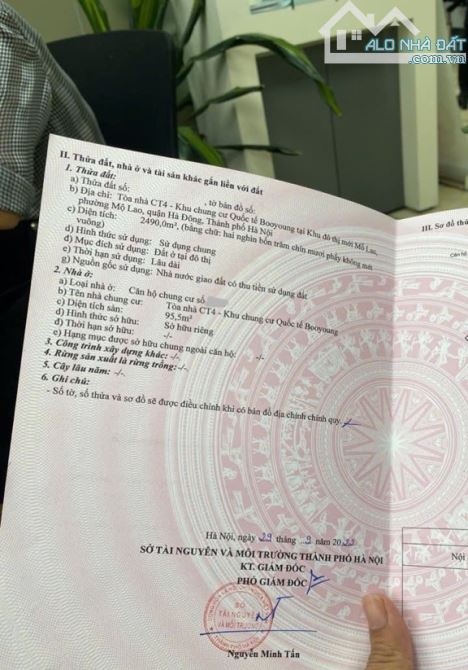 ALO NHÀ ĐẤT
.com.vn
II. Thửa đất, nhà ở và tài sản khác gắn liền với đất
1. Thửa đất:
a) Thửa đất số: , tờ bản đồ số:
b) Địa chỉ: Tòa nhà CT4 - Khu chung cư Quốc tế Booyoung tại Khu đô thị mới Mỗ Lao,
phường Mộ Lao, quận Hà Đông, Thành phố Hà Nội
c) Diện tích: 2490,0m², (bằng chữ: hai nghìn bốn trăm chín mươi phẩy không mét
vuông)
d) Hình thức sử dụng: Sử dụng chung
đ) Mục đích sử dụng: Đất ở tại đô thị
e) Thời hạn sử dụng: Lâu dài
g) Nguồn gốc sử dụng: Nhà nước giao đất có thu tiền sử dụng đất
2. Nhà ở:
a) Loại nhà ở: Căn hộ chung cư số
b) Tên nhà chung cư: Tòa nhà CT4 - Khu chung cư Quốc tế Booyoung
c) Diện tích sàn: 95,5m²
d) Hình thức sở hữu: Sở hữu riêng
đ) Thời hạn sở hữu: -/-
e) Hạng mục được sở hữu chung ngoài căn hộ: -/-
3. Công trình xây dựng khác: -/-
4. Rừng sản xuất là rừng trồng: -/-
5. Cây lâu năm: -/-
6. Ghi chú:
- Số tờ, số thửa và sơ đồ sẽ được điều chỉnh khi có bản đồ địa chính chính quy.
III. Sơ đồ thử
Căn hộ
Hà Nội, ngày 29 tháng 9 năm 20
SỞ TÀI NGUYÊN VÀ MÔI TRƯỜNG THÀNH PHỐ HÀ NỘI
KT. GIÁM ĐỐC
PHÓ GIÁM ĐỐC
SỞ
TÀI NGUYÊN
VÀ MÔI TRƯỜNG
Nguyễn Minh Tấn